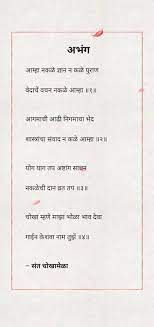 अभंग
आम्हा नकळे ज्ञान न कळे पुराण
वेदाचें वचन नकळे आम्हां ॥१॥
आगमाची आढी निगमाचा भेद
शास्त्रांचा संवाद न कळे आम्हा ॥२॥
योग याग तप अष्टांग साधन
नकळेची दान व्रत तप ॥३॥
चोखा म्हणे माझा भोळा भाव देवा
गाईन केशवा नाम तुझें ॥४॥
– संत चोखामेळा